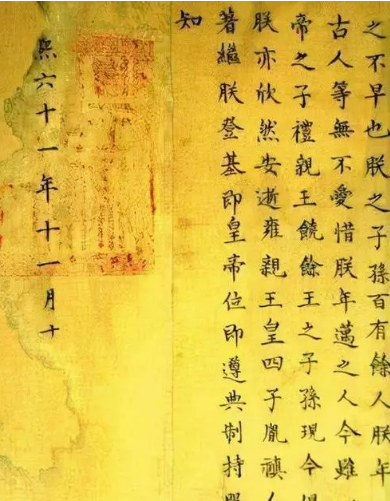 之不早也朕之子孫百有餘人朕年
古人等無不愛惜朕年邁之人今雖
帝之子禮親王饒餘王之子孫現今
朕亦欣然安逝雍親王皇四子胤禛人
著繼朕登基即皇帝位即遵典制持
知
熙六十一年十一月十